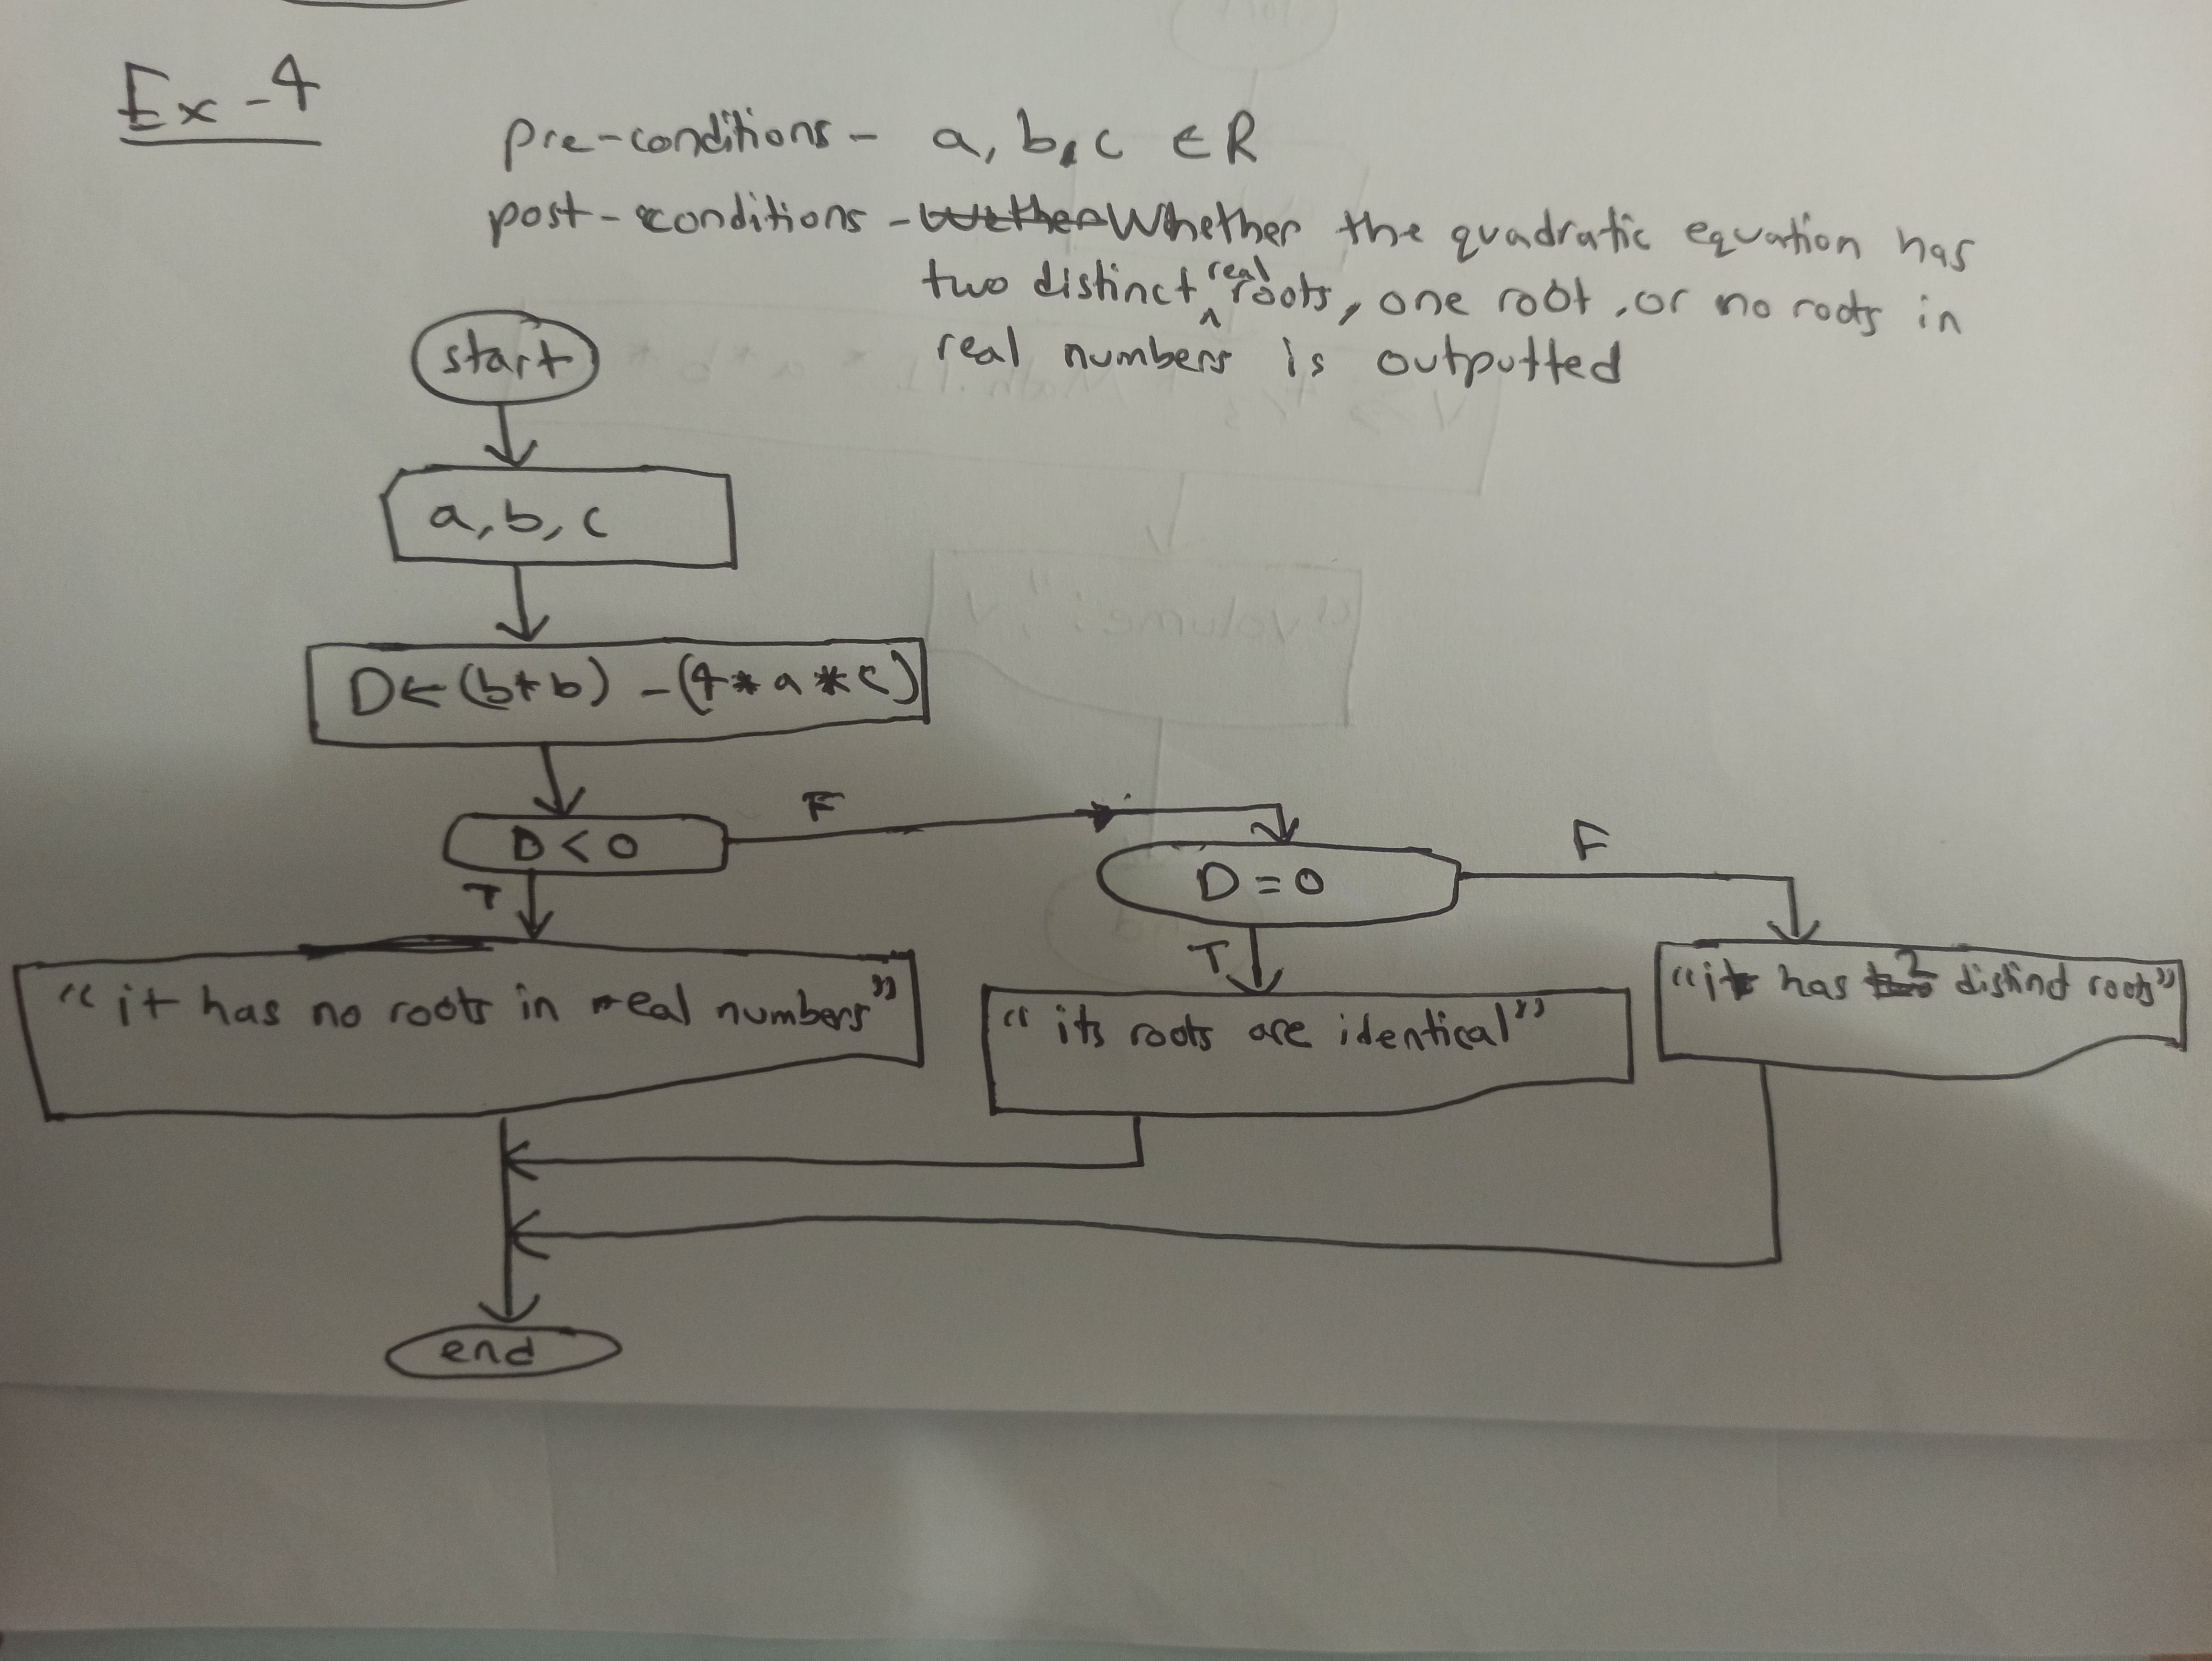 Ex-4
pre-conditions - a, b, c ∈ R
post-conditions - Whether the quadratic equation has
two distinct real roots, one root, or no roots in
real numbers is outputted
start
a, b, c
D ← (b*b) - (4*a*c)
D < 0
F
T
D = 0
F
T
"it has no roots in real numbers"
"its roots are identical"
"it has 2 distinct roots"
end